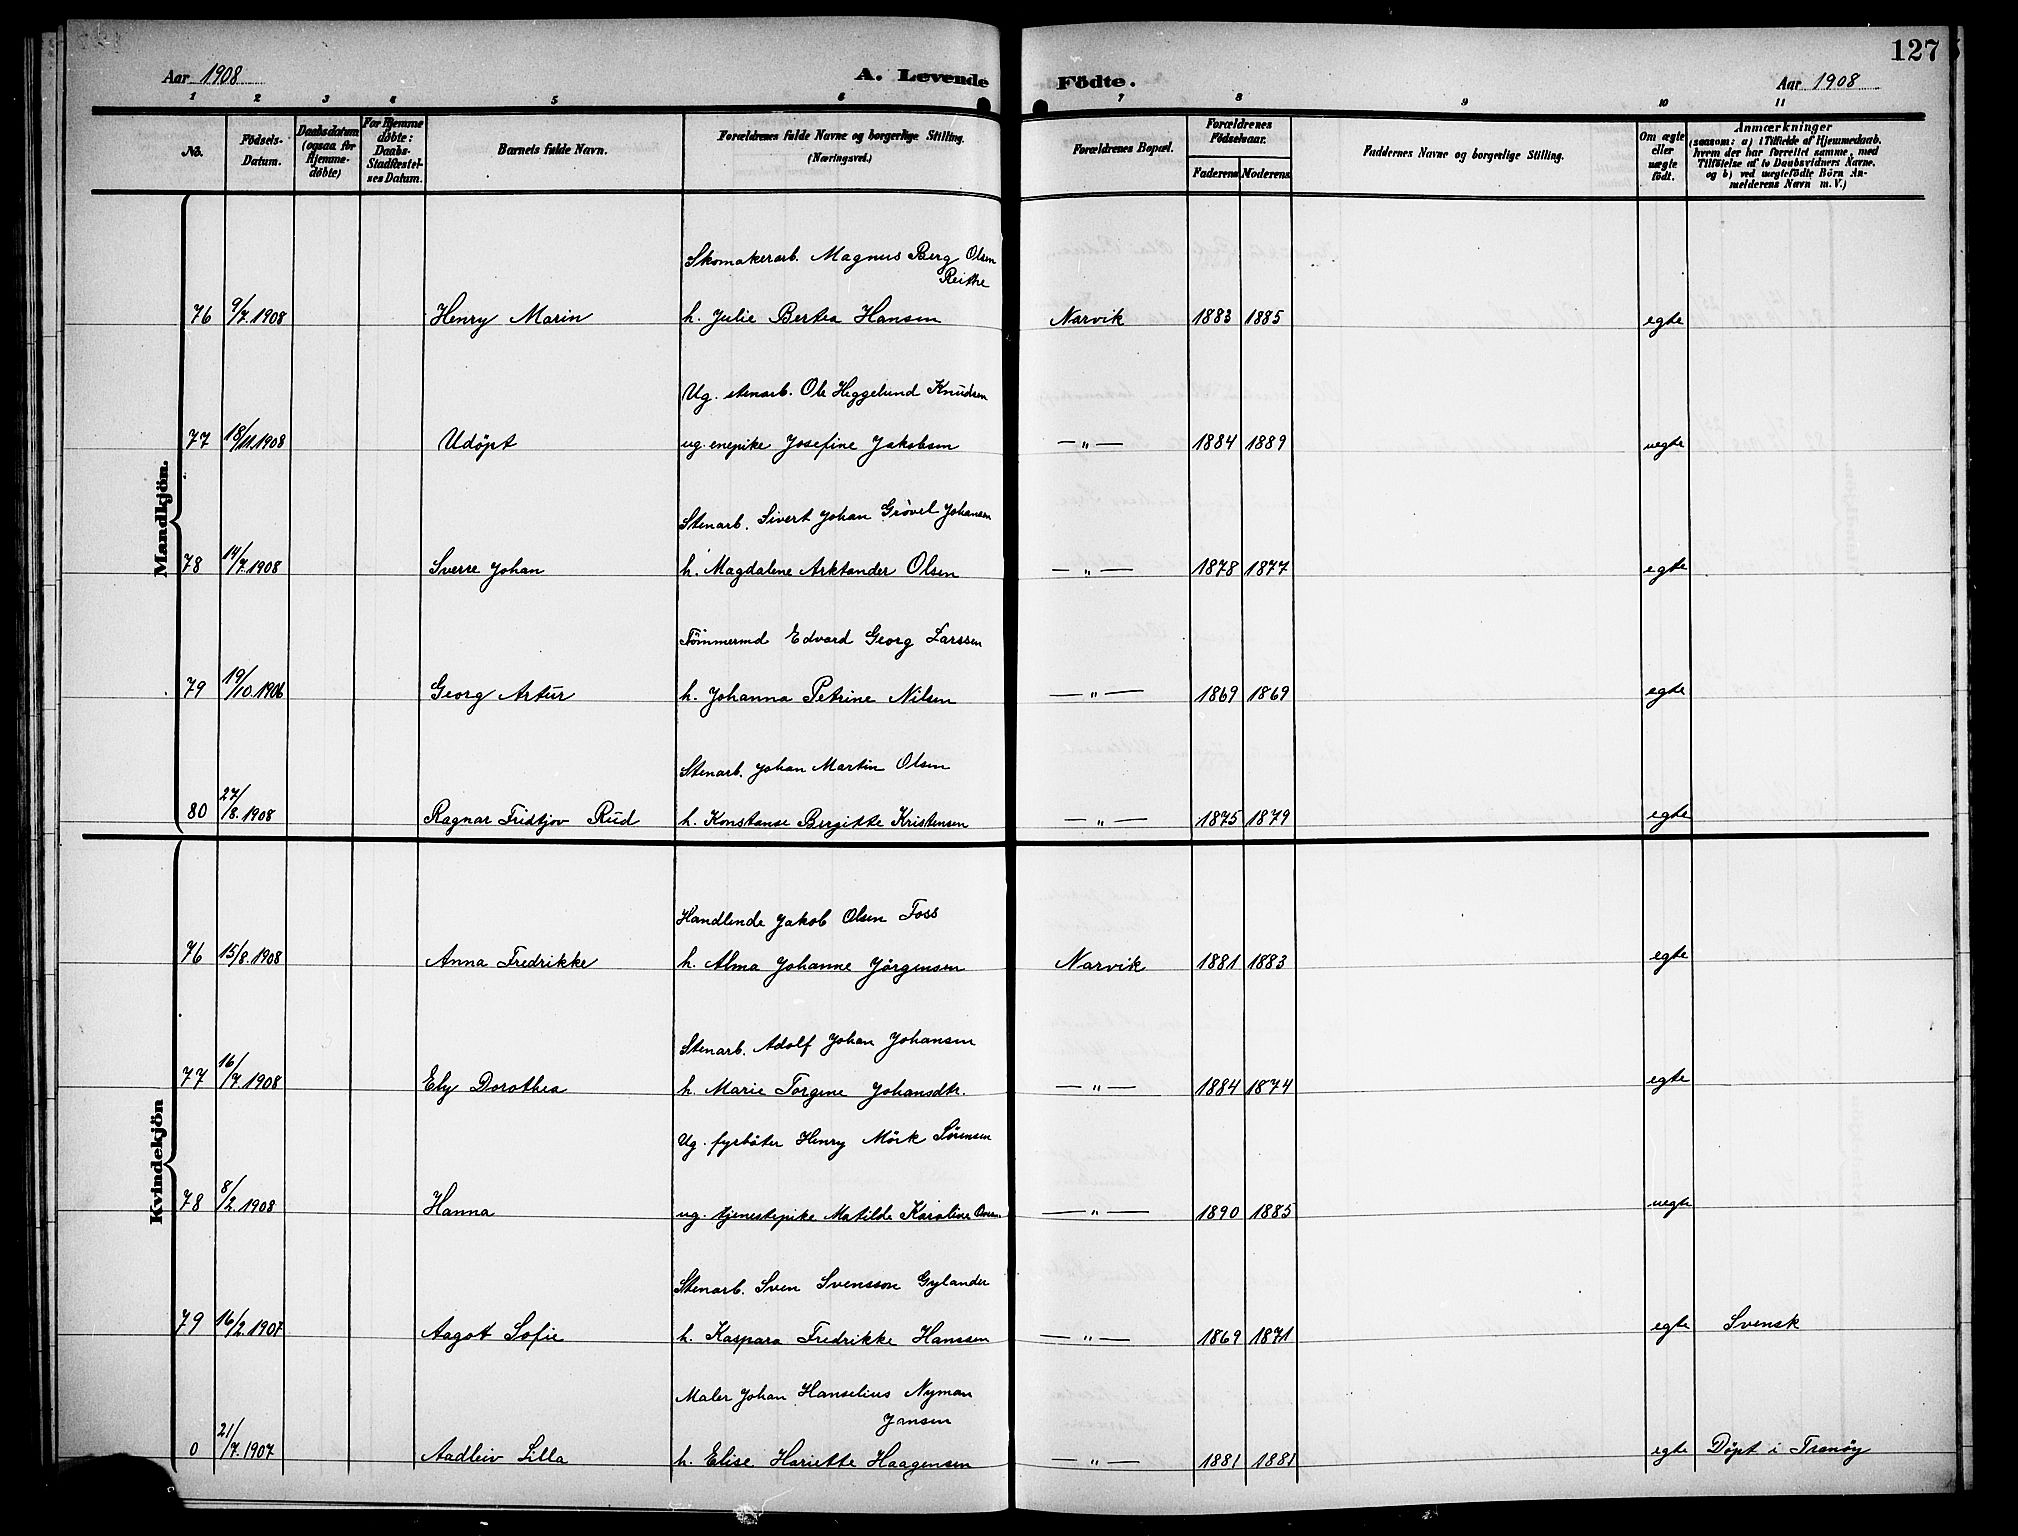 127
Aar 1908 A. Levende Födte. Aar 1908
1 2 3 4 5 6 7 8 9 10 11
No. Födsels-Datum. Daabsdatum (ogsaa for Hjemmedöbte) For Hjemmedöbte: Daabs-Stadfæstelses Datum. Barnets fulde Navn. Forældrenes fulde Navne og borgerlige Stilling. (Næringsvei.) Forældrenes Bopæl. Forældrenes Födselsaar. Faderens Moderens Faddernes Navne og borgerlige Stilling. Om ægte eller uægte födt. Anmærkninger (saasom: a) i Tilfælde af Hjemmedaab, hvem der har forrettet samme, med Tilföielse af to Daabsvidners Navne. og b) ved uægtefödte Börn Anmelderens Navn m. V.)
Mandkjön.
Skomakerarb. Magnus Berg Olsen
Reithe
76 9/7.1908 Henry Marin h. Julie Bertea Hansen Narvik 1883 1885 egte
Ug. stenarb. Ole Heggelund Knudsen
77 18/11.1908 Udöpt ug. enepike Josefine Jakobsen —"— 1884 1889 uegte
Stenarb. Sivert Johan Grövel Johansen
78 14/7.1908 Sverre Johan h. Magdalene Arktander Olsen —"— 1878 1877 egte
Tömmermd Edvard Georg Larssen
79 19/10.1906 Georg Artur h. Johanna Petrine Nilsen —"— 1869 1869 egte
Stenarb. Johan Martin Olsen
80 27/8.1908 Ragnar Fridtjov Rud h. Konstanse Birgitte Kristensen —"— 1875 1879 egte
Kvindekjön
Handlende Jakob Olsen Foss
76 15/8.1908 Anna Fredrikke h. Alma Johanne Jörgensen Narvik 1881 1883 egte
Stenarb. Adolf Johan Johansen
77 16/7.1908 Ely Dorothea h. Marie Torgine Johansdtr. —"— 1884 1874 egte
Ug. fyrböter Henry Mörk Sörensen
78 8/2.1908 Hanna ug. tjenestepike Matilde Karoline —"— 1890 1885 uegte
Stenarb. Sven Svensson Gylander
79 16/2.1907 Aagot Sofie h. Kaspara Fredrikke Hanssen —"— 1869 1871 egte Svensk
Maler Johan Hanselius Nyman
Jensen
0 21/7.1907 Aadleiv Lilla h. Elise Hariette Haagensen —"— 1881 1881 egte Döpt i Tranöy